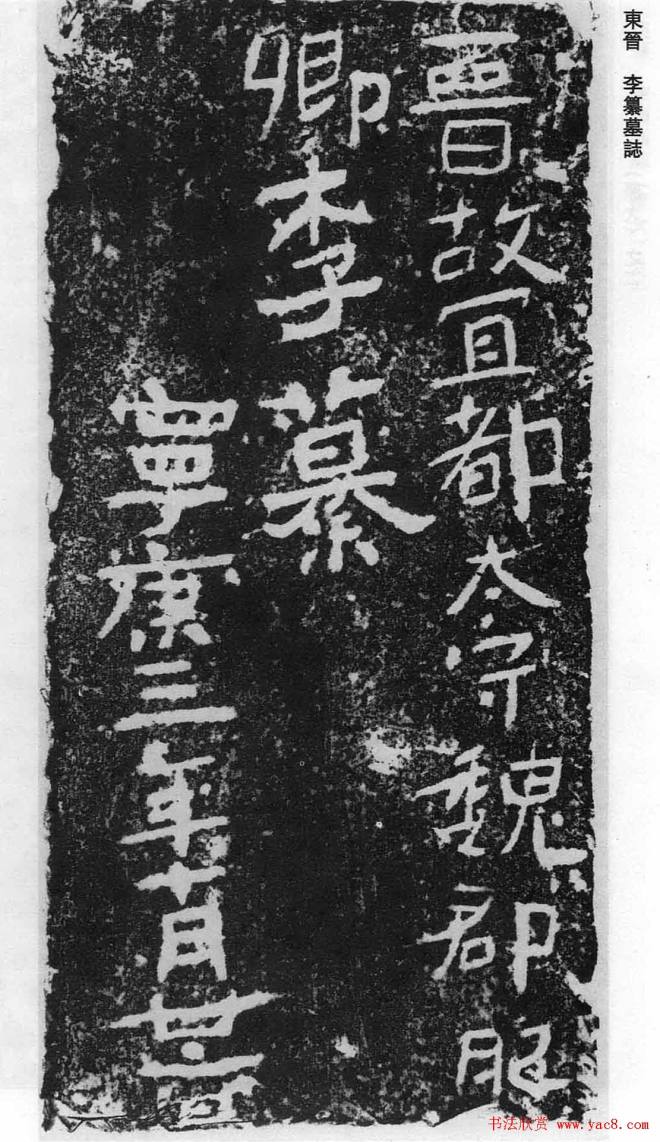 東晉 李纂墓誌
晉故宜都太守魏郡肥
鄉李纂
寧康三年十月廿
书法欣赏 www.yac8.com